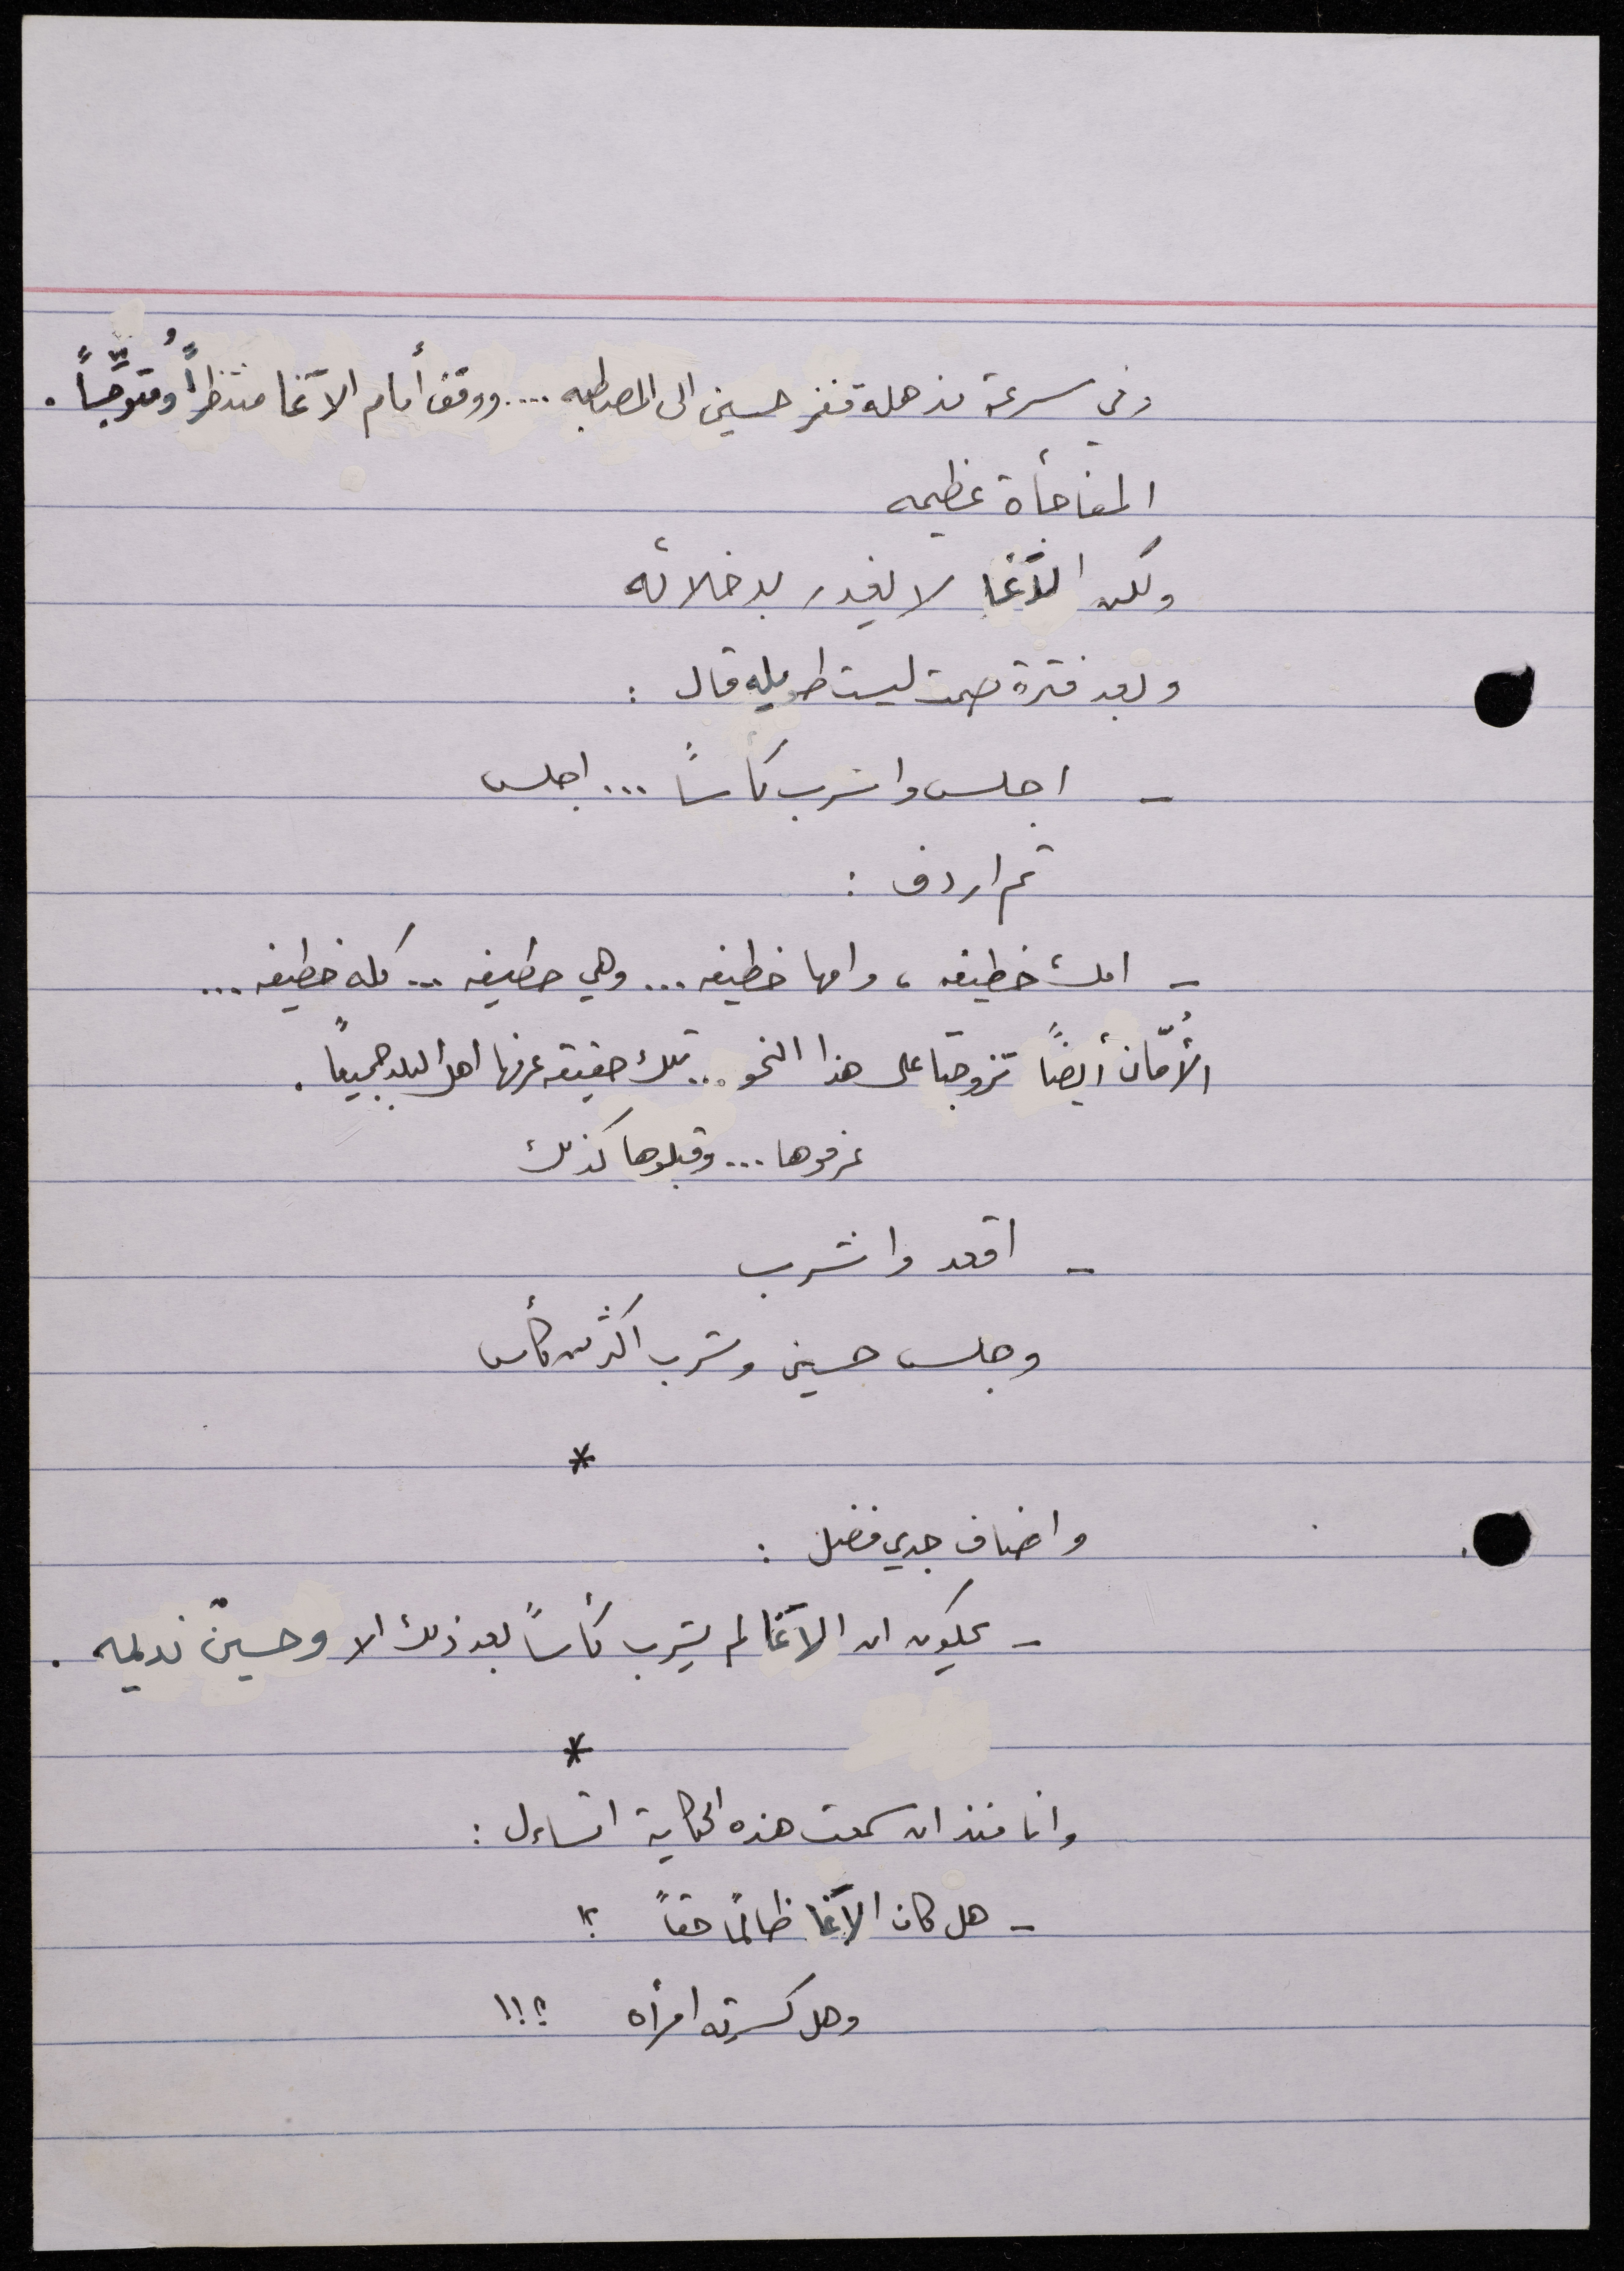 وفي سرعة مذهلة قفز حسين الى المصطبه .... ووقف أمام الآغا منتظراً ومُتوجِّساً .
المفاجأة عظيمه
ولكن الآغا لا يغدر بدخلائه
وبعد فترة صمت ليست طويله قال :
- اجلس واشرب كأساً ... اجلس
ثم اردف :
- امك خطيفه ، وامها خطيفه ... وهي خطيفه ... كله خطيفه ...
الأُمّان أيضاً تزوجتا على هذا النحو ... تلك حقيقه عرفها اهل البلد جميعاً .
عرفوها ... وقبلوها كذلك
- اقعد واشرب
وجلس حسين وشرب اكثر من كأس
*
واضاف جدي فضل :
- يحكون ان الآغا لم يشرب كأساً بعد ذلك الا وحسينٌ نديمه .
*
وانا منذ ان سمعت هذه الحكاية اتساءل :
- هل كان الآغا ظالماً حقاً ؟!
وهل كسرته امرأه ؟!!